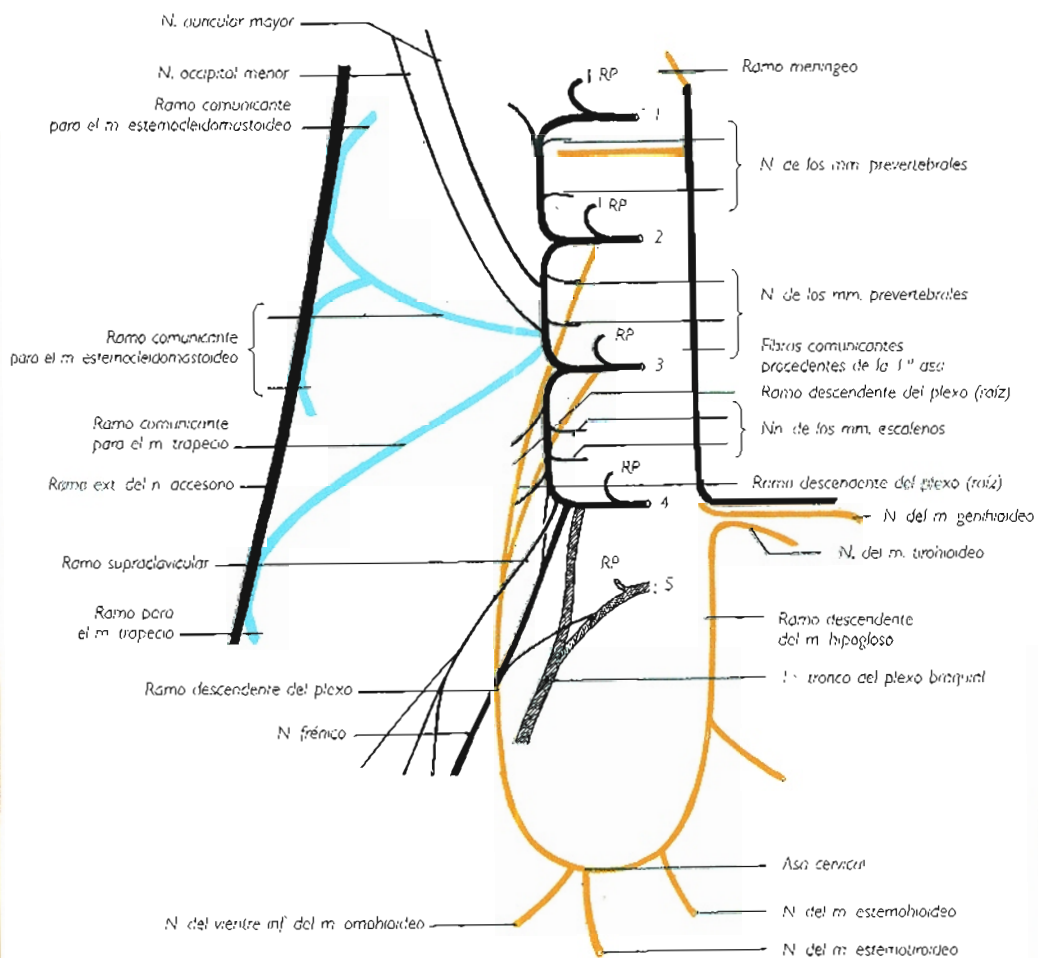 N. auricular mayor
N. occipital menor
Ramo comunicante
para el m esternocleidomastoideo
Ramo comunicante
para el m esternocleidomastoideo
Ramo comunicante
para el m trapecio
Ramo ext. del n. accesorio
Ramo supraclavicular
Ramo para
el m trapecio
Ramo descendente del plexo
N frénico
N del vientre inf del m omohioideo
RP
1
RP
2
RP
3
RP
4
RP
5
Ramo meníngeo
N de los mm prevertebrales
N de los mm. prevertebrales
Fibras comunicantes
procedentes de la 1ª asa
Ramo descendente del plexo (raíz)
Nn de los mm. escalenos
Ramo descendente del plexo (raíz)
N del m genihioideo
N. del m. tirohioideo
Ramo descendente
del m hipogloso
tronco del plexo braquial
Asa cervical
N del m esternohioideo
N del m esternotiroideo